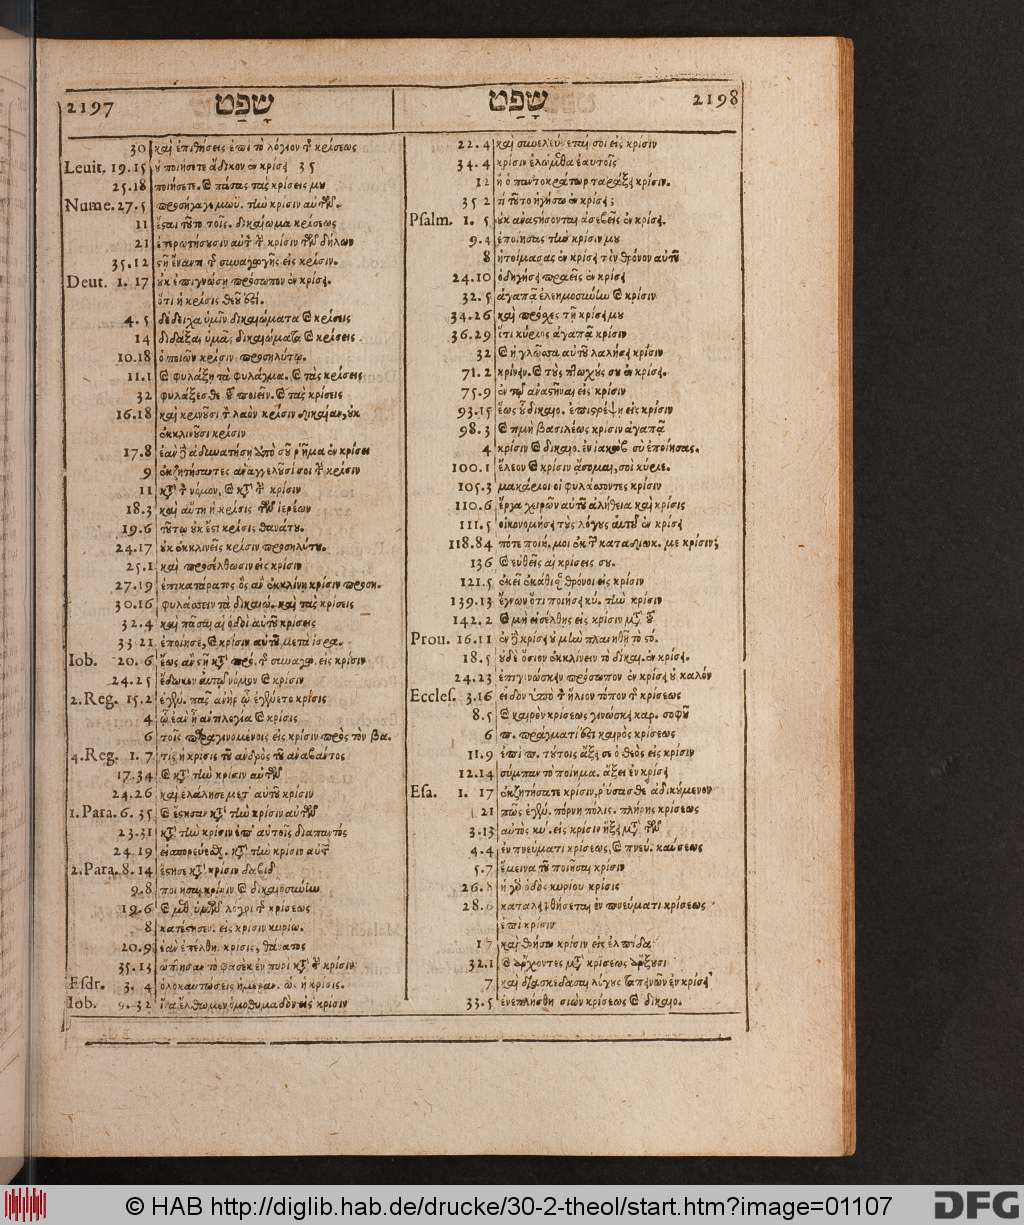 2197 שָׁפַט
30 καὶ ἐπιθήσεις ἐπὶ τὸ λόγιον τ κρίσεως
Leuit. 19.15 ὐ ποιήσετε ἄδικον ἐν κρίσει 35
25.18 ποιήσετε. καὶ πάσας τὰς κρίσεις μου
Nume. 27.5 προσήγαγε μωϋ. τὴν κρίσιν αὐτῶν.
11 ἔσται τοῦτο τοῖς. δικαίωμα κρίσεως
21 ἐπερωτήσουσιν αὐτ τ κρίσιν τῶν δήλων
35.12 στῇ ἔναντι τ συναγωγῆς εἰς κρίσιν.
Deut. 1.17 οὐκ ἐπιγνώσῃ πρόσωπον ἐν κρίσει.
ὅτι ἡ κρίσις θεοῦ ἐστί.
4.5 δέδειχα ὑμῖν δικαιώματα καὶ κρίσεις
14 διδάξαι ὑμᾶς δικαιώματα καὶ κρίσεις
10.18 ὁ ποιῶν κρίσιν προσηλύτῳ.
11.1 καὶ φυλάξῃ τὰ φυλάγμα. καὶ τὰς κρίσεις
32 φυλάξεσθε τοῦ ποιεῖν. καὶ τὰς κρίσεις
16.18 καὶ κρινοῦσι τ λαὸν κρίσιν δικαίαν, οὐκ
ἐκκλινοῦσι κρίσιν
17.8 ἐὰν ἀδυνατήσῃ ἀπὸ σοῦ ῥῆμα ἐν κρίσει
9 ἐκζητήσαντες ἀναγγελοῦσί σοι τ κρίσιν
11 κτ τ νόμον, καὶ κτ τ κρίσιν
18.3 καὶ αὕτη ἡ κρίσις τῶν ἱερέων
19.6 τούτῳ οὐκ ἔστι κρίσις θανάτου.
24.17 οὐκ ἐκκλινεῖς κρίσιν προσηλύτου.
25.1 καὶ προσέλθωσιν εἰς κρίσιν
27.19 ἐπικατάρατος ὃς ἂν ἐκκλίνῃ κρίσιν προση.
30.16 φυλάσσειν τὰ δικαιώ. καὶ τὰς κρίσεις
32.4 καὶ πᾶσαι αἱ ὁδοὶ αὐτοῦ κρίσεις
33 21 ἐποίησε, καὶ κρίσιν αὐτοῦ μετὰ ἰσρα.
Iob. 20.6 ἕως ἂν στῇ κτ πρό. τ συναγω. εἰς κρίσιν
24.25 ἔδωκεν αὐτῷ νόμον καὶ κρίσιν
2.Reg. 15.2 ἐγένε. πᾶς ἀνὴρ ᾧ ἐγένετο κρίσις
4 ᾧ ἐὰν ᾖ ἀντιλογία καὶ κρίσις
6 τοῖς παραγινομένοις εἰς κρίσιν πρὸς τὸν βα.
4.Reg. 1.7 τίς ἡ κρίσις τοῦ ἀνδρὸς τοῦ ἀναβάντος
17.34 καὶ κτ τὴν κρίσιν αὐτῶν
24.26 καὶ ἐλάλησε μετ' αὐτοῦ κρίσιν
1.Para. 6.35 καὶ ἔστησαν κτ τὴν κρίσιν αὐτῶν
23.31 κτ τὴν κρίσιν ἐπ' αὐτοῖς διαπαντός
24.19 εἰσπορεύεσθ. κτ τὴν κρίσιν αὐτ
2.Para. 8.14 ἔστησε κτ κρίσιν δαβιδ
9.8 ποιῆσαι κρίσιν καὶ δικαιοσύνην
19.6 καὶ μεθ' ὑμῶν λόγοι τ κρίσεως
8 κατέστησεν. εἰς κρίσιν κυρίῳ.
20.9 ἐὰν ἐπέλθῃ. κρίσις, θάνατος
35.13 ὤπτησαν τὸ φασὲκ ἐν πυρὶ κτ τ κρίσιν
Esdr. 3.4 ὁλοκαυτώσεις ἡμέραν. ὡς ἡ κρίσις.
Iob. 9.32 ἵνα ἔλθωμεν ὁμοθυμαδὸν εἰς κρίσιν
שָׁפַט 2198
22.4 καὶ συνελεύσεταί σοι εἰς κρίσιν
34.4 κρίσιν ἑλώμεθα ἑαυτοῖς
12 ἢ ὁ παντοκράτωρ ταράξει κρίσιν.
35 2 τί τοῦτο ἡγήσω ἐν κρίσει;
Psalm. 1.5 οὐκ ἀναστήσονται ἀσεβεῖς ἐν κρίσει.
9.4 ἐποίησας τὴν κρίσιν μου
8 ἡτοίμασας ἐν κρίσει τὸν θρόνον αὐτοῦ
24.10 ὁδηγήσει πραεῖς ἐν κρίσει
32.5 ἀγαπᾷ ἐλεημοσύνην καὶ κρίσιν
34.26 καὶ πρόσχες τῇ κρίσει μου
36.29 ὅτι κύριος ἀγαπᾷ κρίσιν
32 καὶ ἡ γλῶσσα αὐτοῦ λαλήσει κρίσιν
71.2 κρίνειν. καὶ τοὺς πτωχούς σου ἐν κρίσει.
75.9 ἐν τῷ ἀναστῆναι εἰς κρίσιν
93.15 ἕως οὗ δικαιο. ἐπιστρέψῃ εἰς κρίσιν
98.3 καὶ τιμὴ βασιλέως κρίσιν ἀγαπᾷ
4 κρίσιν καὶ δικαιο. ἐν ἰακὼβ σὺ ἐποίησας.
100.1 ἔλεον καὶ κρίσιν ᾄσομαι, σοὶ κύριε.
105.3 μακάριοι οἱ φυλάσσοντες κρίσιν
110.6 ἔργα χειρῶν αὐτοῦ ἀλήθεια καὶ κρίσις
111.5 οἰκονομήσει τοὺς λόγους αὐτοῦ ἐν κρίσει
118.84 πότε ποιή. μοι ἐκ τ καταδιωκ. με κρίσιν;
136 καὶ εὐθεῖς αἱ κρίσεις σου.
121.5 ἐκεῖ ἐκάθισ. θρόνοι εἰς κρίσιν
139.13 ἔγνων ὅτι ποιήσει κύ. τὴν κρίσιν
142.2 καὶ μὴ εἰσέλθῃς εἰς κρίσιν μτ τοῦ
Prou. 16.11 ἐν κρίσει οὐ μὴ πλανηθῇ τὸ στό.
18.5 οὐδὲ ὅσιον ἐκκλίνειν τὸ δίκαι. ἐν κρίσει.
24.23 ἐπιγινώσκειν πρόσωπον ἐν κρίσει οὐ καλόν
Eccles. 3.16 εἶδον ὑπὸ τ ἥλιον τόπον τ κρίσεως
8.5 καὶ καιρὸν κρίσεως γινώσκει καρ. σοφοῦ
6 π. πράγματι ἐστὶ καιρὸς κρίσεως
11.9 ἐπὶ π. τούτοις ἄξει σε ὁ θεὸς εἰς κρίσιν
12.14 σύμπαν τὸ ποίημα. ἄξει ἐν κρίσει
Esa. 1.17 ἐκζητήσατε κρίσιν, ῥύσασθε ἀδικούμενον
21 πῶς ἐγένε. πόρνη πόλις. πλήρης κρίσεως
3.13 αὐτὸς κύ. εἰς κρίσιν ἥξει μτ τῶν
4.4 ἐν πνεύματι κρίσεως, καὶ πνεύ. καύσεως
5.7 ἔμεινα τοῦ ποιῆσαι κρίσιν
26. ἡ γὰρ ὁδὸς κυρίου κρίσις
28.6 καταλειφθήσεται ἐν πνεύματι κρίσεως
ἐπὶ κρίσιν
17 καὶ θήσω κρίσιν εἰς ἐλπίδα
32.1 καὶ ἄρχοντες μτ κρίσεως ἄρξουσι
7 καὶ διασκεδάσαι λόγους ταπεινῶν ἐν κρίσει
33.5 ἐνεπλήσθη σιὼν κρίσεως καὶ δικαιο.
© HAB http://diglib.hab.de/drucke/30-2-theol/start.htm?image=01107
DFG